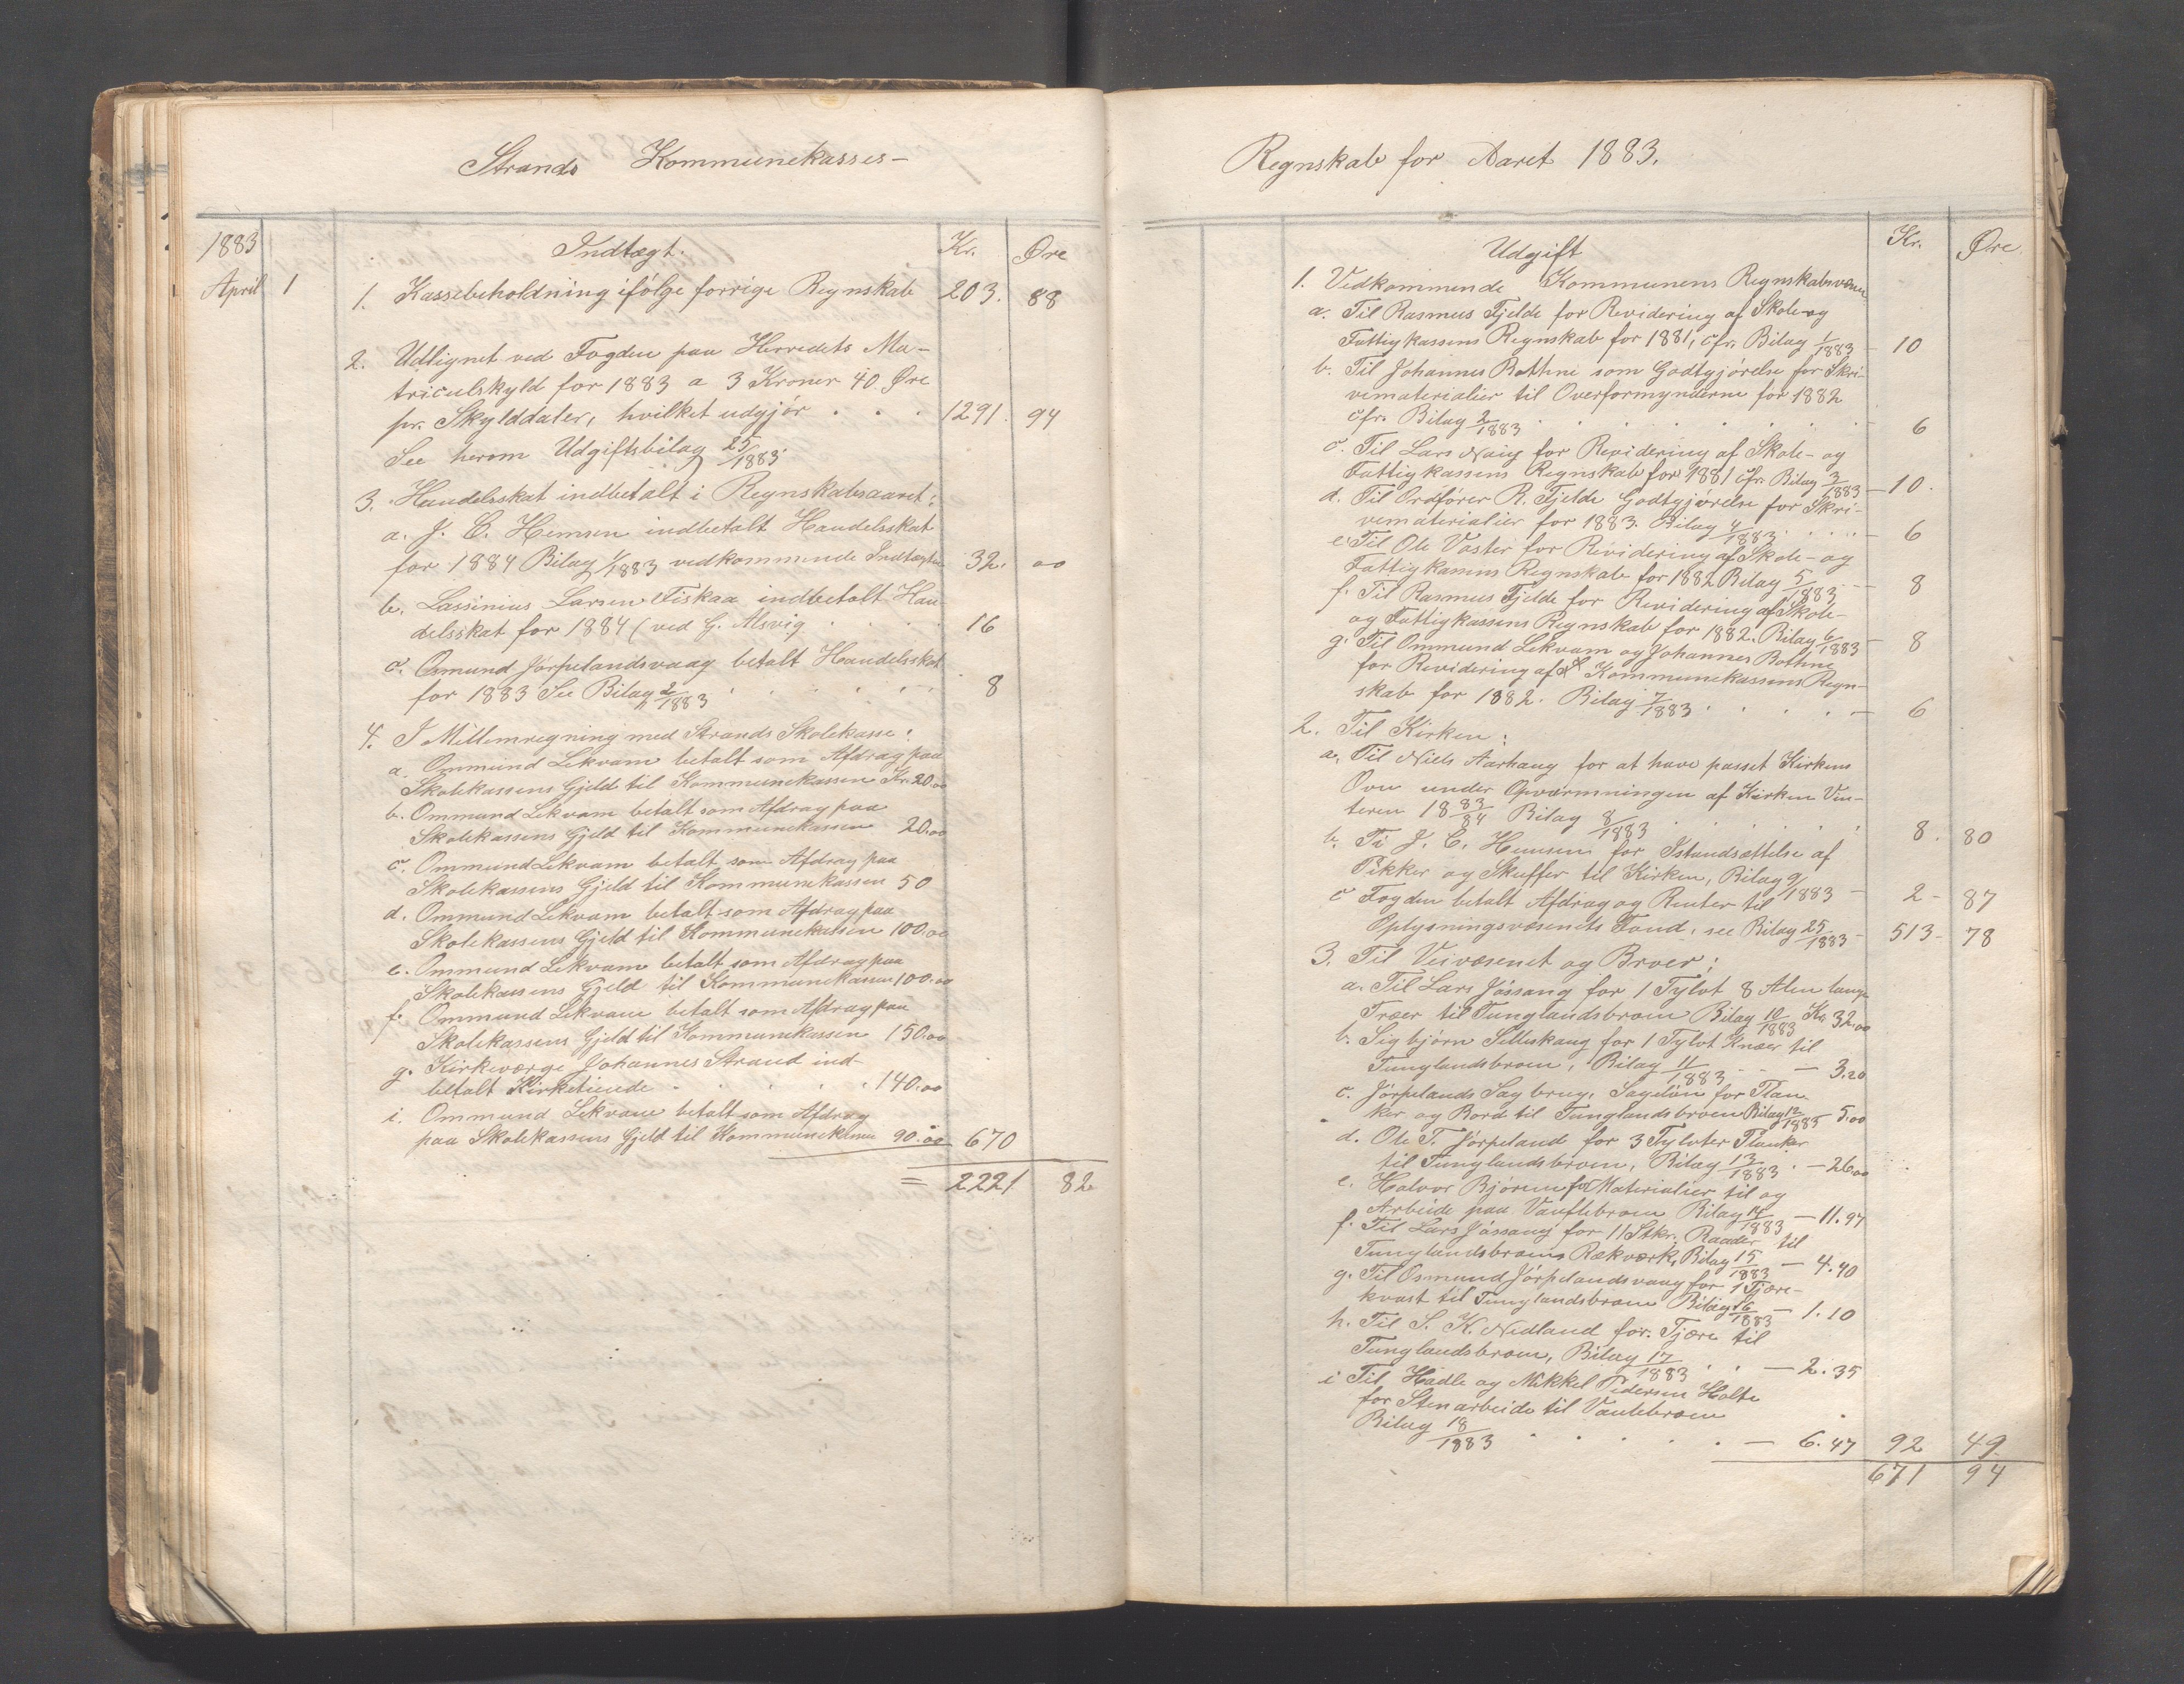 Strands Kommunekasses-
1883
Indtægt.
Kr.
Øre
April 1
1. Kassebeholdning ifølge forrige Regnskab 203. 88
2. Udlignet ved Fogden paa Herredets Ma-
triculskyld for 1883 a 3 Kroner 40 Øre
pr. Skylddaler, hvilket udgjør . . . 1291. 94
See herom Udgiftsbilag 25/1883
3. Handelsskat indbetalt i Regnskabsaaret:
a. J. C. Hemsen indbetalt Handelsskat
for 1884 Bilag 1/1883 vedkommende Indtægten 32. 00
b. Lassinius Larsen Fiskaa indbetalt Han-
delsskat for 1884 (ved G. Alsvig . . . . 16
c. Osmund Jørpelandsvaag betalt Handelsskat
for 1883 See Bilag 2/1883 . . . . . 8
4. I Mellemregning med Strands Skolekasse:
a. Ommund Lekvam betalt som Afdrag paa
Skolekassens Gjeld til Kommunekassen Kr. 20.00
b. Ommund Lekvam betalt som Afdrag paa
Skolekassens Gjeld til Kommunekassen 20.00
c. Ommund Lekvam betalt som Afdrag paa
Skolekassens Gjeld til Kommunekassen 50
d. Ommund Lekvam betalt som Afdrag paa
Skolekassens Gjeld til Kommunekassen 100.00
e. Ommund Lekvam betalt som Afdrag paa
Skolekassens Gjeld til Kommunekassen 100.00
f. Ommund Lekvam betalt som Afdrag paa
Skolekassens Gjeld til Kommunekassen 150.00
g. Kirkeværge Johannes Strand ind-
betalt Kirketiende . . . . . 140.00
i. Ommund Lekvam betalt som Afdrag
paa Skolekassens Gjeld til Kommunekassen 90.00 670
= 2221 82
Regnskab for Aaret 1883.
Udgift
Kr.
Øre
1. Vedkommende Kommunens Regnskabsvæsen
a. Til Rasmus Fjelde for Revidering af Skole- og
Fattigkassens Regnskab for 1881, cfr. Bilag 1/1883 - 10
b. Til Johannes Bothne som Godtgjørelse for Skri-
vematerialier til Overformynderne for 1882
cfr. Bilag 2/1883 . . . . . . . . 6
c. Til Lars Naig for Revidering af Skole- og
Fattigkassens Regnskab for 1881 cfr. Bilag 3/1883 - 10.
d. Til Ordfører R. Fjelde Godtgjørelse for Skri-
vematerialier for 1883. Bilag 4/1883 . . . . - 6
e. Til Ole Vaster for Revidering af Skole- og
Fattigkassens Regnskab for 1882 Bilag 5/1883 - - 8
f. Til Rasmus Fjelde for Revidering af Skole-
og Fattigkassens Regnskab for 1882. Bilag 6/1883 - 8
g. Til Ommund Lekvam og Johannes Bothne
for Revidering af Kommunekassens Regn-
skab for 1882. Bilag 7/1883 . . . . - 6
2. Til Kirken:
a. Til Niels Aarhaug for at have passet Kirkens
Ovn under Opvarmningen af Kirken Vin-
teren 18 83/84 Bilag 8/1883 . . . . . 8. 80
b. Ti J. C. Hemsen for Istandsættelse af
Pikker og Skuffer til Kirken, Bilag 9/1883 - 2 - 87
c Fogden betalt Afdrag og Renter til
Oplysningsvæsenets Fond, see Bilag 25/1883 - 513 - 78
3. Til Veivæsenet og Broer:
a. Til Lars Jøssang for 1 Tylvt 8 Alen lange
Træer til Tunglandsbroen Bilag 10/1883 Kr. 32.00
b. Sigbjørn Selleskaug for 1 Tylvt Knæer til
Tunglandsbroen, Bilag 11/1883 - - - 3.20
c. Jørpelands Sagbrug, Sageløn for Plan-
ker og Bord til Tunglandsbroen Bilag 12/1883 5.00
d. Ole T. Jørpeland for 3 Tylvter Planker
til Tunglandsbroen, Bilag 13/1883 . - 26.00
e. Halvor Bjøreim for Materialier til og
Arbeide paa Vaulebroen Bilag 14/1883 - 11.97
f. Til Lars Jøssang for 11 Stkr. Raader til
Tunglandsbroens Rækværk, Bilag 15/1883 - 4.40
g. Til Osmund Jørpelandsvaag for 1 Tjære-
kvast til Tunglandsbroen Bilag 16/1883 - 1.10
h. Til S. K. Nedland for Tjære til
Tunglandsbroen, Bilag 17/1883 . . - 2.35
i Til Hadle og Mikkel Pedersen Holte
for Stenarbeide til Vaulebroen
Bilag 18/1883 . . . . . - 6.47 92 49
671 94